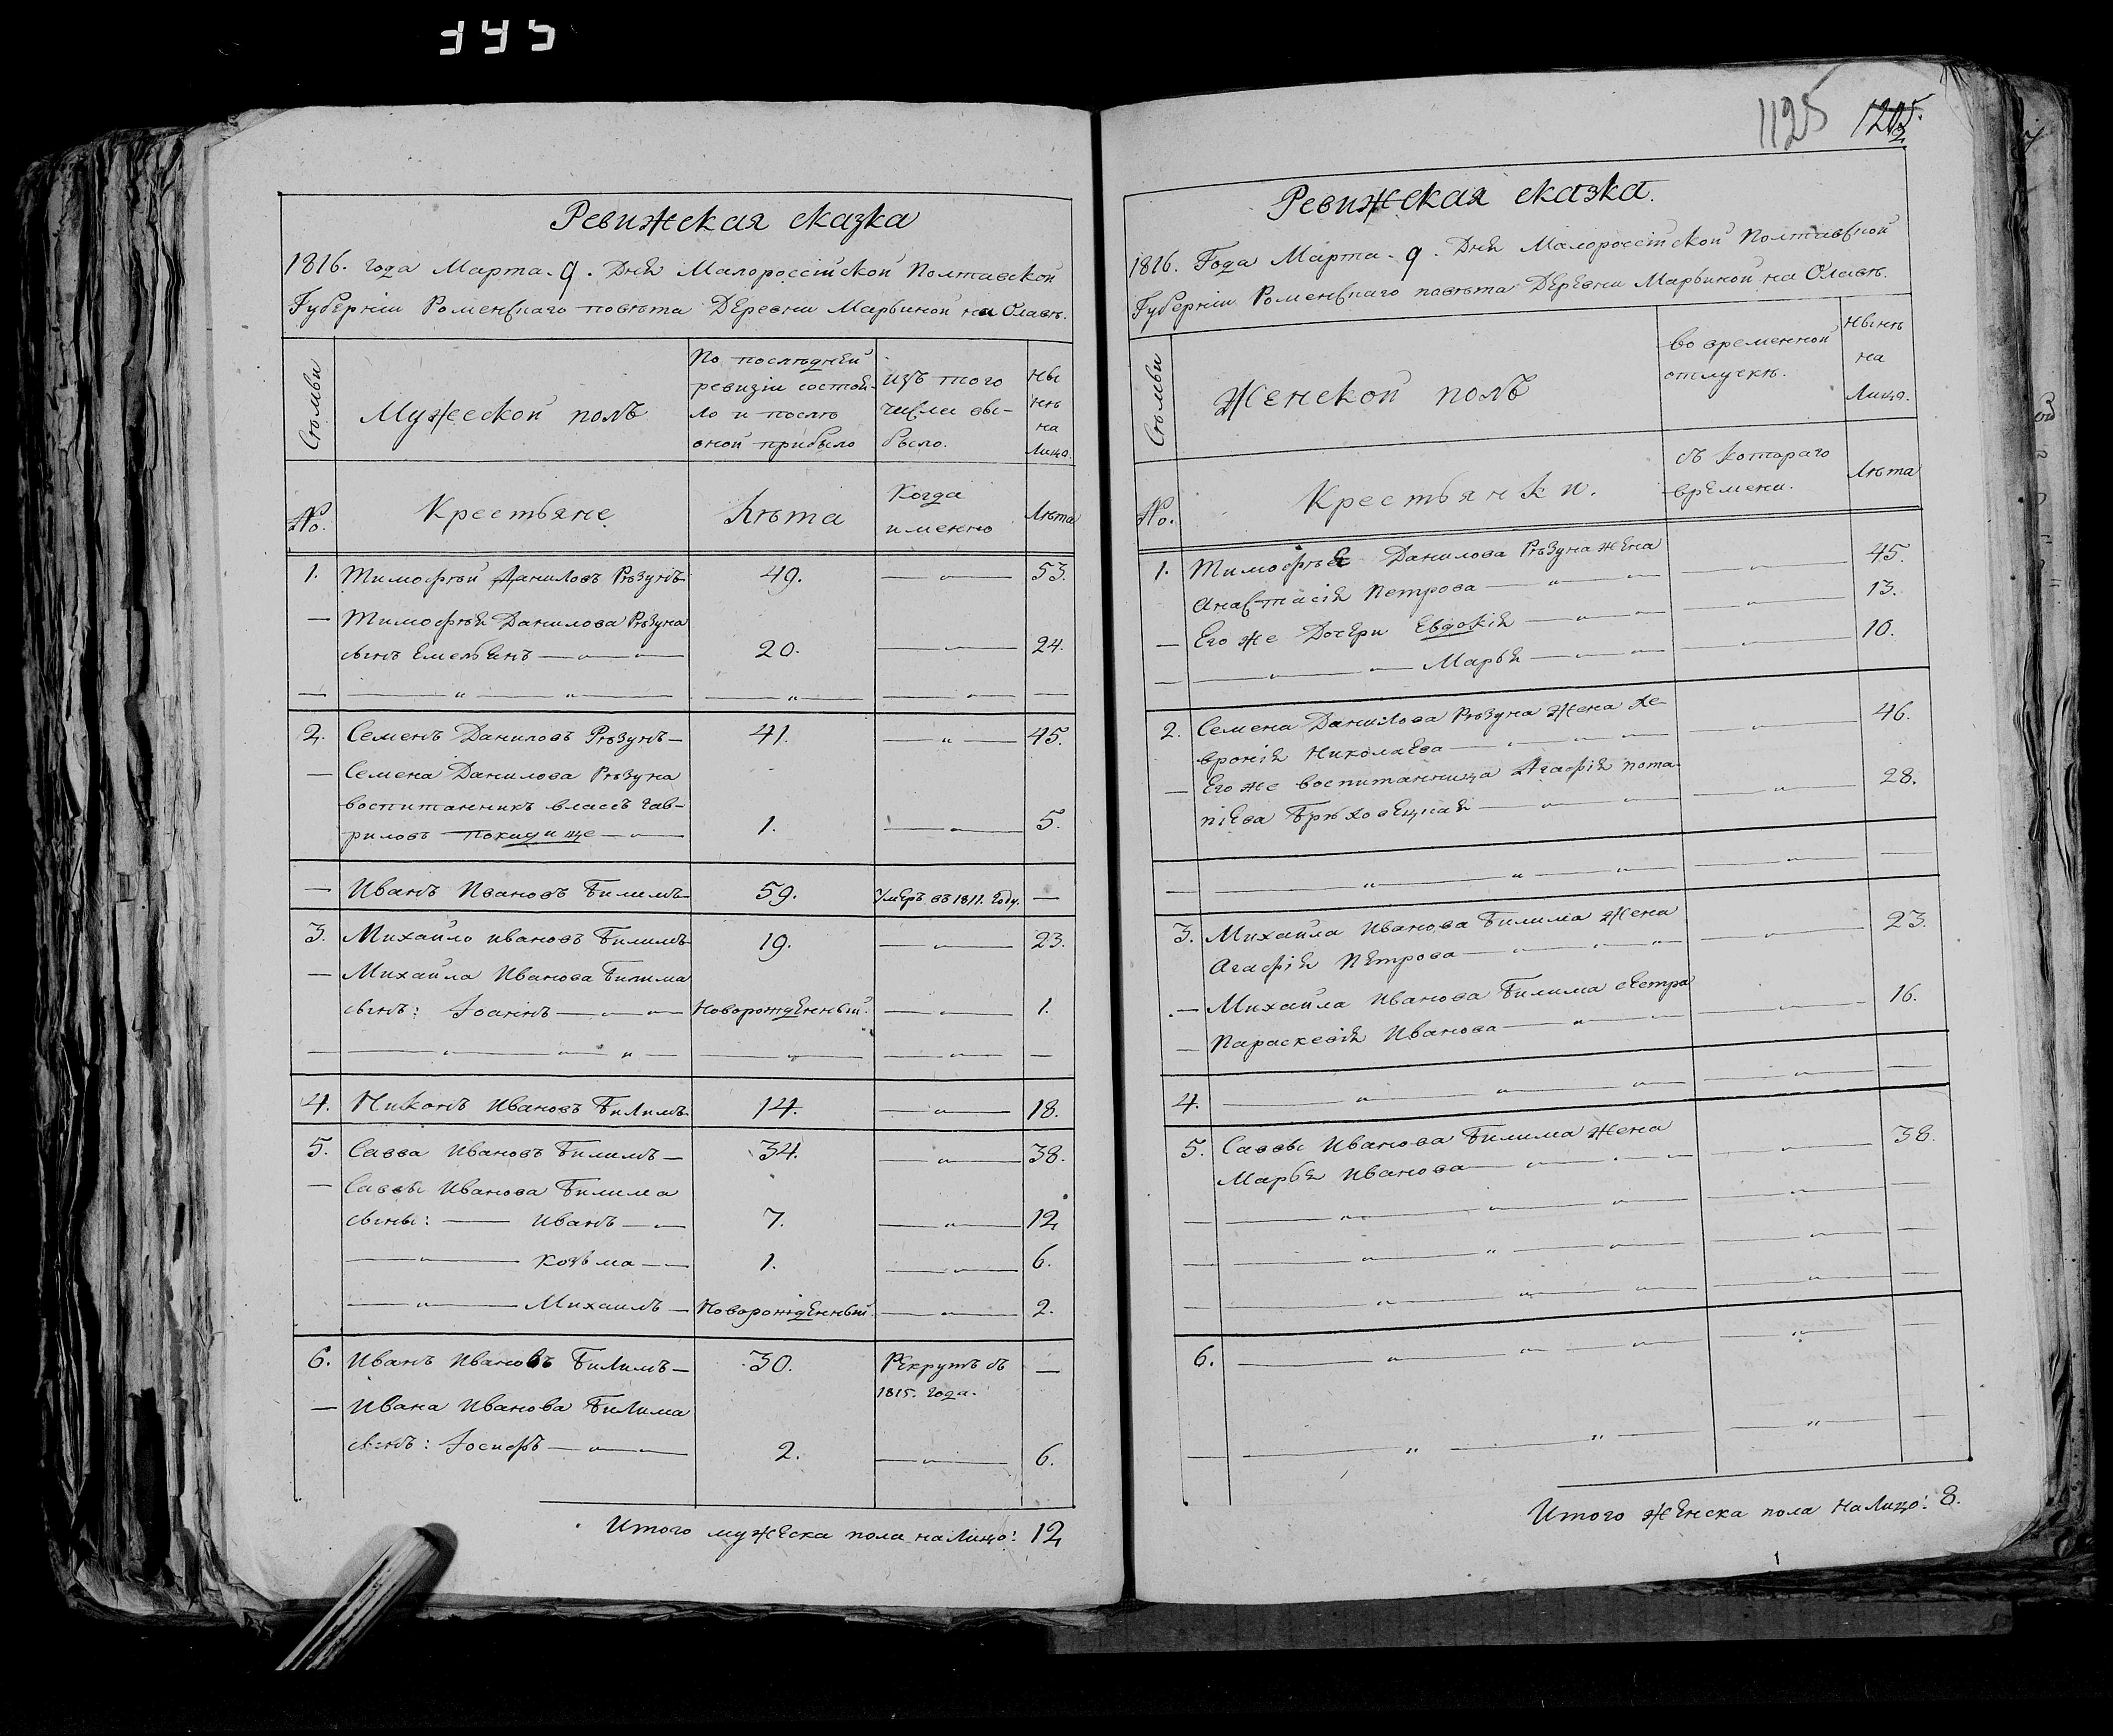 345
Ревижская сказка
1816. года Марта. 9. Дня Малороссійской Полтавской
Губерніи Роменскаго повѣта Деревни Марьиной на Олавѣ.
Сѣмьи
Мужеской полъ
По послѣдней
ревизіи состоя-
ло и послѣ
оной прибыло
изъ того
числа вы-
было.
Ны
нѣ
на
Лицо.
№.
Крестьяне
Лѣта
Когда
именно
Лѣта
1. Тимофѣй Даниловъ Рѣзунъ 49. — „ — 53.
— Тимофѣя Данилова Рѣзуна
сынъ Емельянъ — „ — 20. — „ — 24.
2. Семенъ Даниловъ Рѣзунъ — 41. — „ — 45.
— Семена Данилова Рѣзуна
воспитанникъ власъ Гав-
риловъ Покидище — „ — 1. — „ — 5.
— Иванъ Ивановъ Билимъ 59. Умеръ въ 1811. Году. —
3. Михайло ивановъ Билимъ 19. — „ — 23.
— Михайла Иванова Билима
сынъ: Іоаннъ — „ — Новорожденный. — „ — 1.
4. Никонъ Ивановъ Билимъ 14. — „ — 18.
5. Савва Ивановъ Билимъ — 34. — „ — 38.
— Саввы Иванова Билима
сыны: — Иванъ — „ — 7. — „ — 12
— „ — Козьма — „ — 1. — „ — 6.
— „ — Михаилъ — Новорожденный. — „ — 2.
6. Иванъ Ивановъ Билимъ — 30. Рекрутъ съ —
1815. года.
— Ивана Иванова Билима
сынъ: Іосифъ — „ — 2. — „ — 6.
Итого мужеска пола налицо: 12
1125
Ревижская сказка.
1816. Года Марта. 9. Дня Малороссійской Полтавской
Губерніи Роменскаго повѣта Деревни Марьиной на Олавѣ.
Сѣмьи
Женской полъ
во временной
отлучкѣ.
Нынѣ
на
Лицо.
№.
Крестьянки.
съ Котораго
времени.
Лѣта
1. Тимофѣя Данилова Рѣзуна жена
Анастасія Петрова — „ — 45.
— Его же Дочери Евдокія — „ — 13.
— „ — Марья — „ — 10.
2. Семена Данилова Рѣзуна Жена Хе-
вронія Николаева — „ — 46.
— Его же воспитанница Агафія пота-
піева — „ — 28.
3. Михайла Иванова Билима Жена
Агафія Петрова — „ — 23.
— Михайла Иванова Билима сестра
— Параскевія Иванова — „ — 16.
4. — „ —
5. Саввы Иванова Билима Жена
Марья Иванова — „ — 38.
6. — „ —
Итого Женска пола налицо: 8.